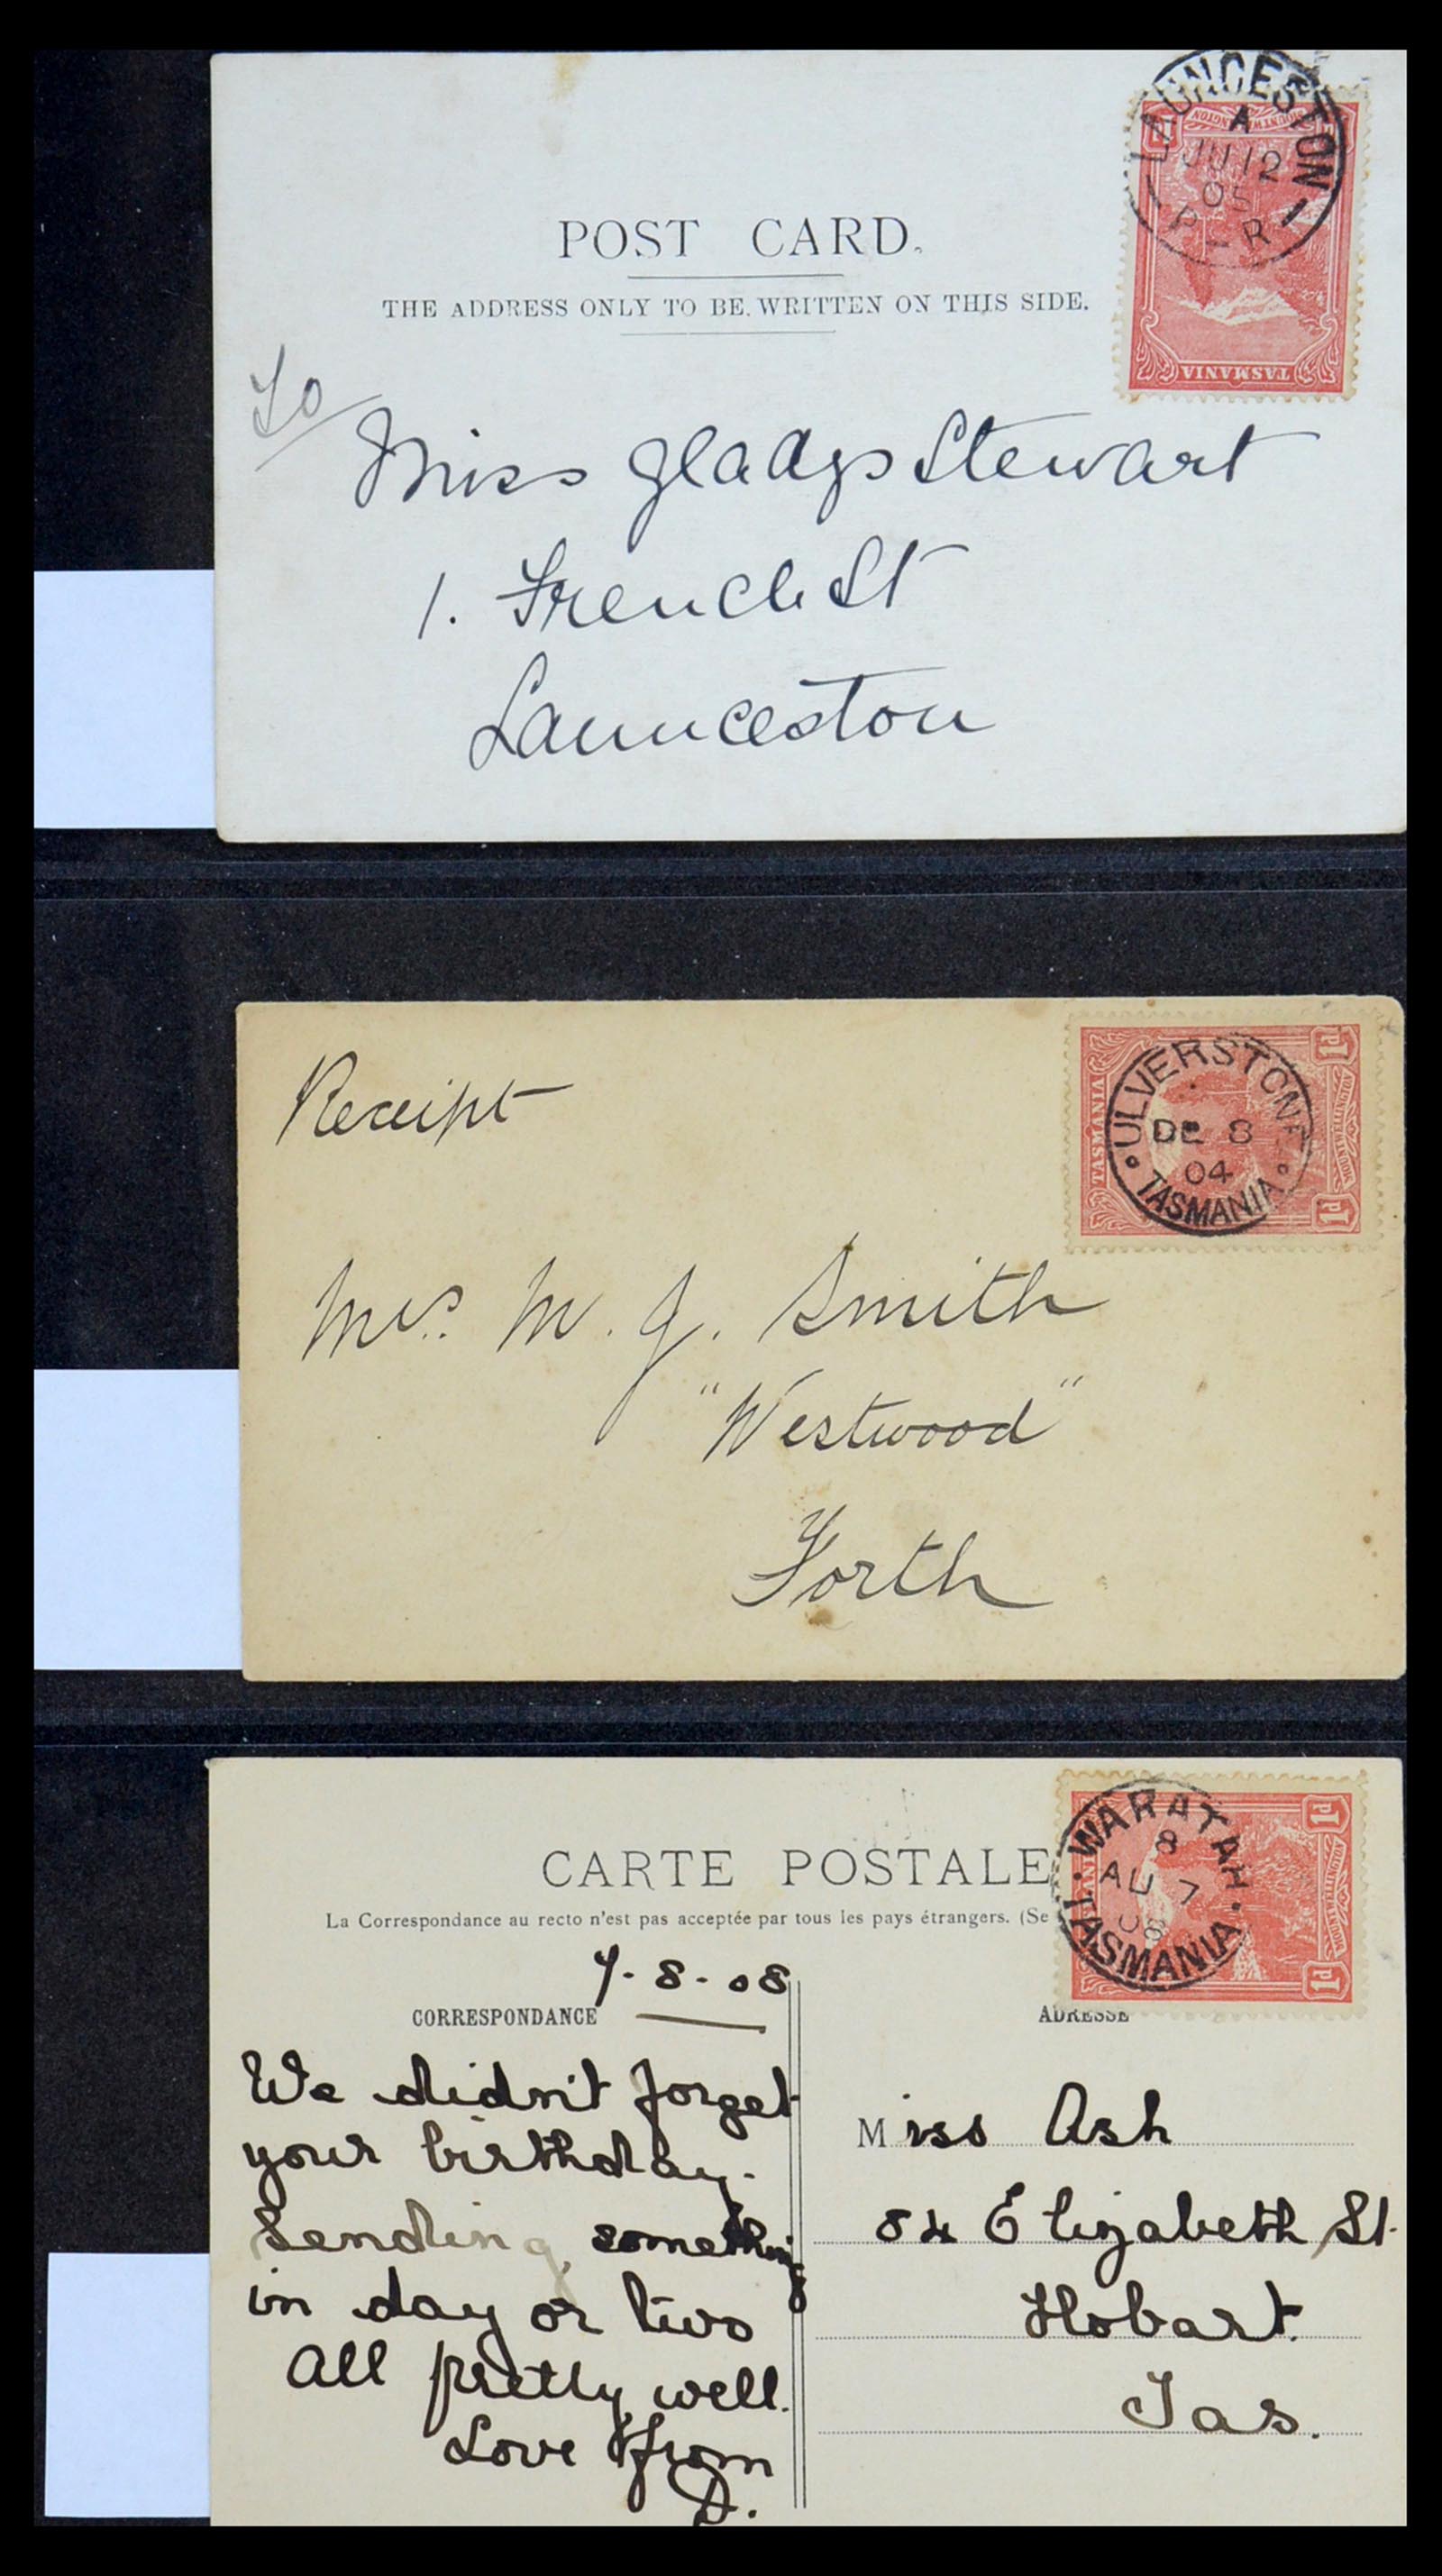 LAUNCESTON
A
JU 12
05
P-R 1
MOUNT WELLINGTON
TASMANIA
POST CARD.
THE ADDRESS ONLY TO BE WRITTEN ON THIS SIDE.
To
Miss Gladys Stewart
1. French St
Launceston
Receipt
ULVERSTONE
DE 8
04
TASMANIA
TASMANIA
1d
MOUNT WELLINGTON
1d
Mrs. M. J. Smith
"Westwood"
Forth
WARATAH
8
AU 7
08
TASMANIA
1d
MOUNT WELLINGTON
1d
CARTE POSTALE
La Correspondance au recto n'est pas acceptée par tous les pays étrangers. (Se
7-8-08
CORRESPONDANCE
ADRESSE
We didn't forget
your birthday.
Sending something
in day or two
All pretty well.
Love from
D.
Miss Ash
84 Elizabeth St.
Hobart.
Tas.